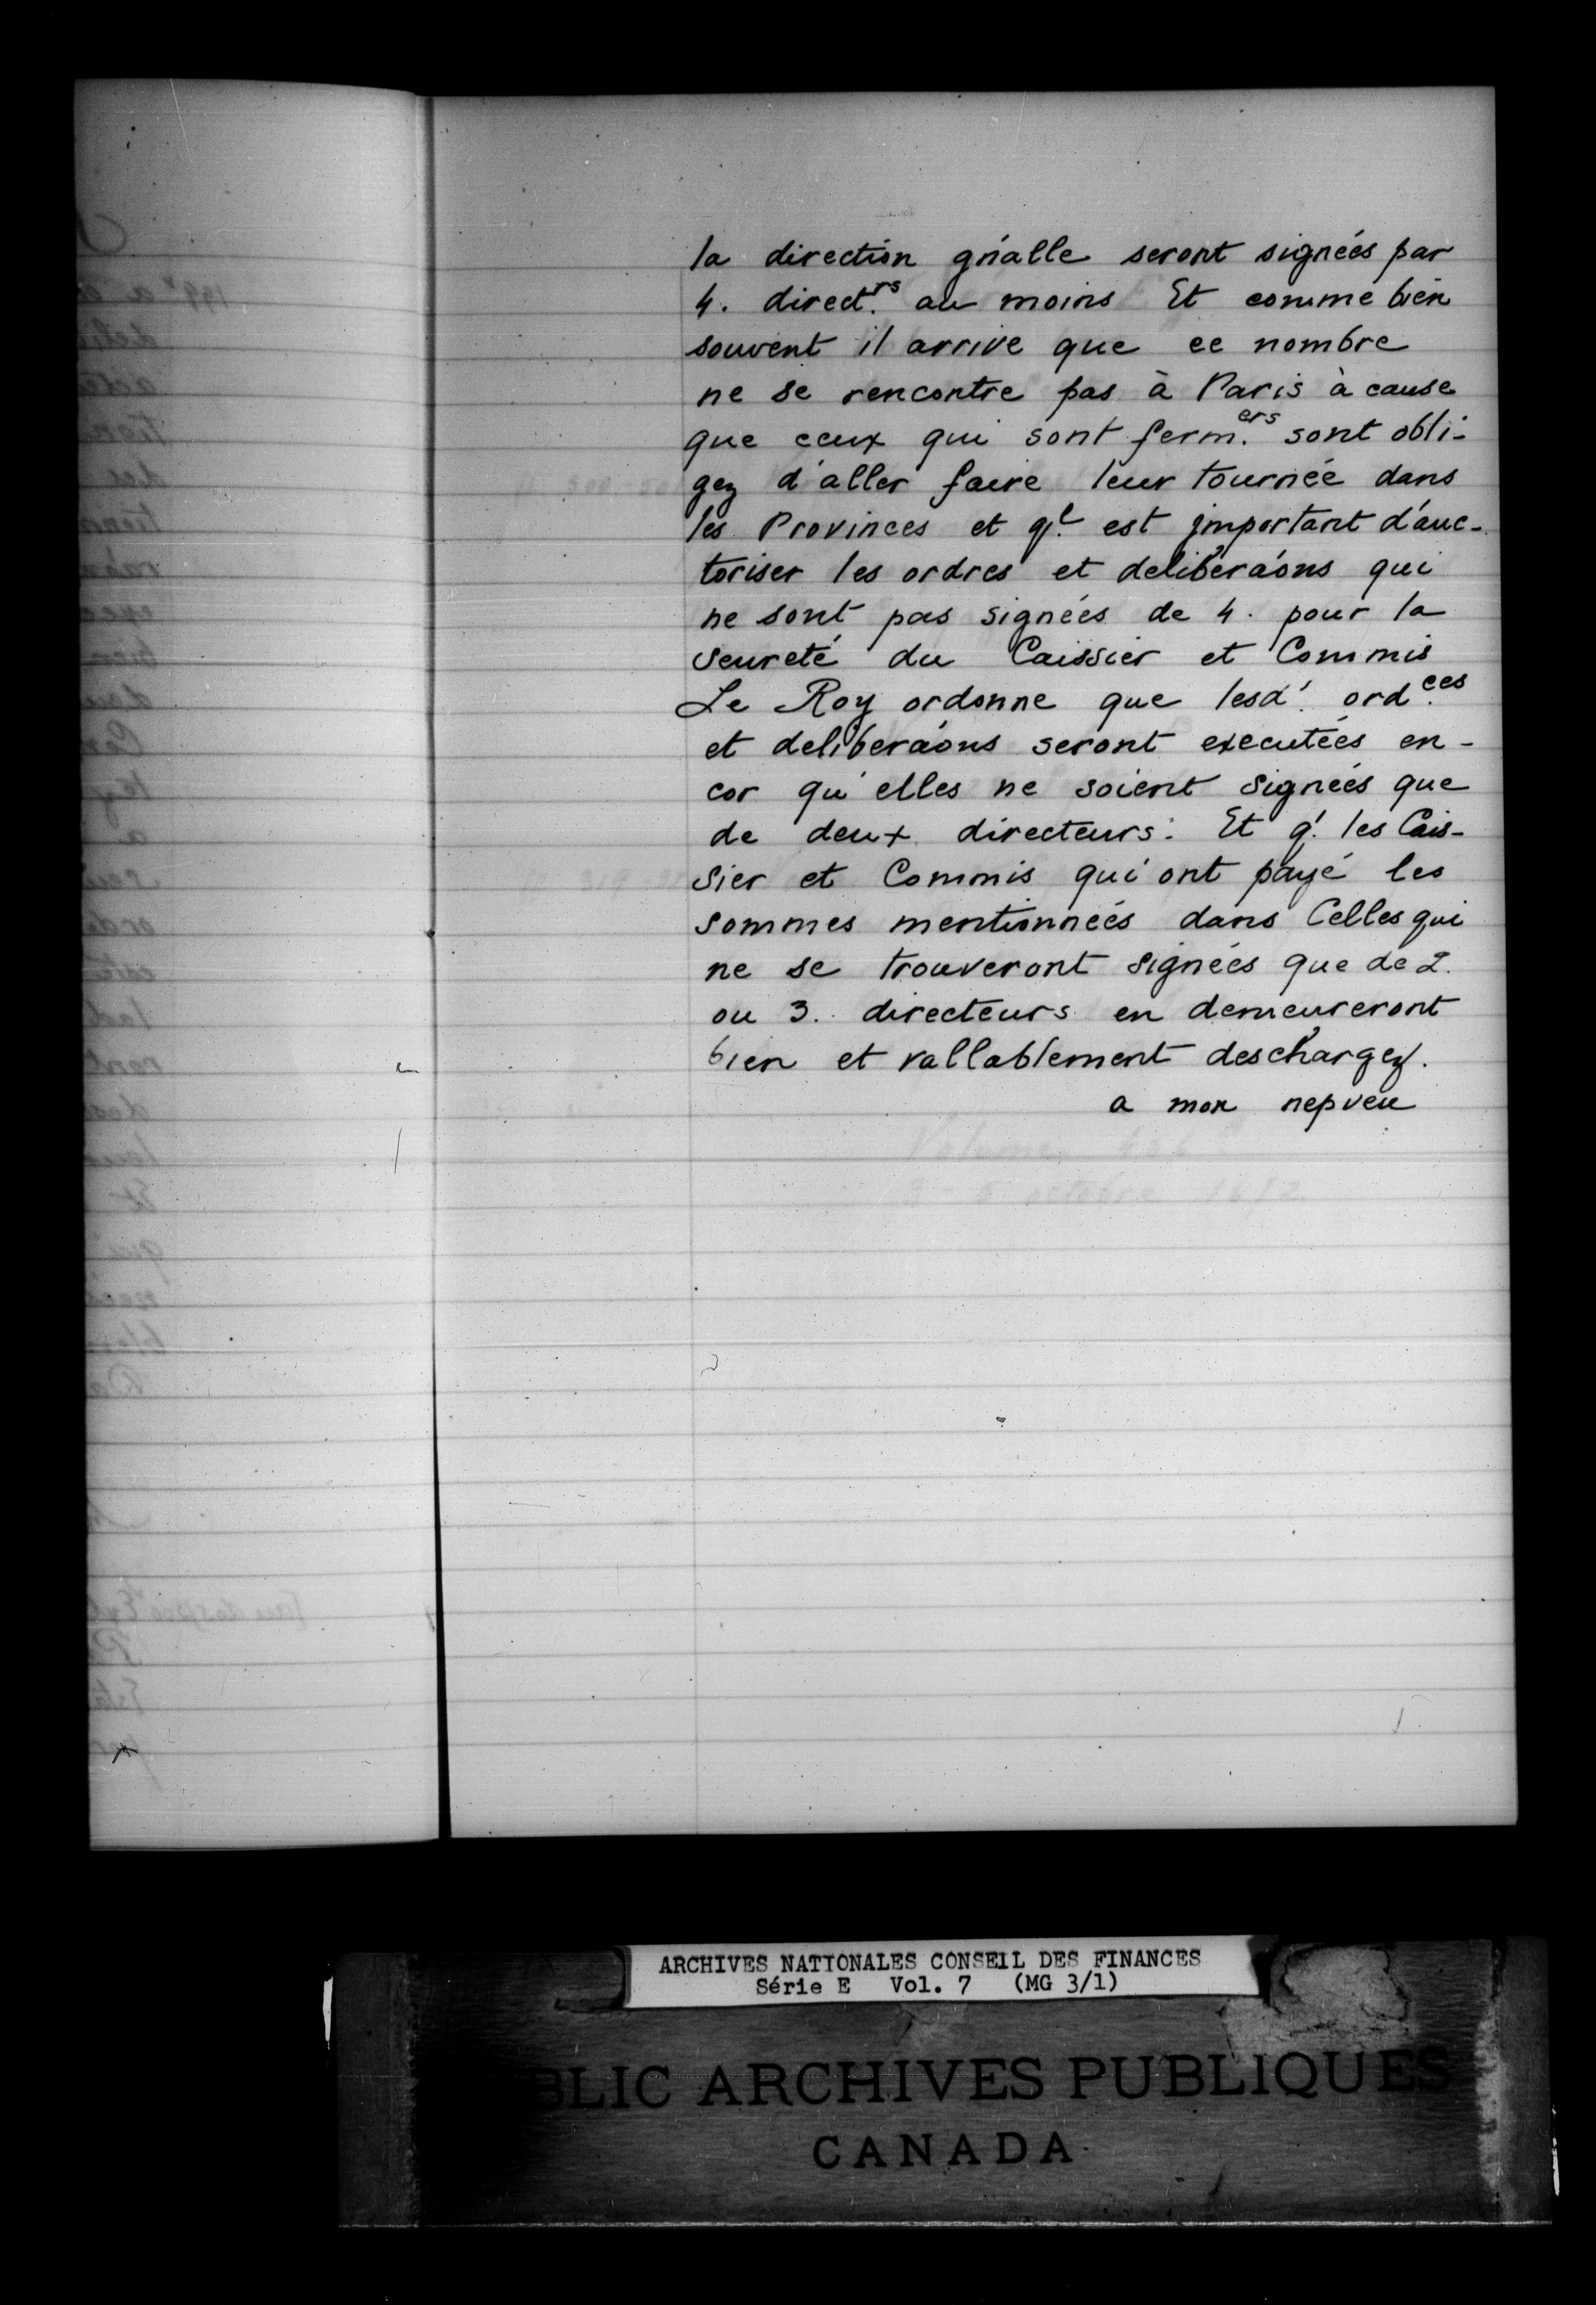 la direction gn̄alle seront signées par
4. direct.rs au moins Et comme bien
souvent il arrive que ce nombre
ne se rencontre pas à Paris à cause
que ceux qui sont ferm.ers sont obli-
gez d'aller faire leur tournée dans
les Provinces et q.l est important d'auc-
toriser les ordres et deliberaōns qui
ne sont pas signées de 4. pour la
seureté du Caissier et Commis
Le Roy ordonne que lesd. ord.ces
et deliberaōns seront executées en-
cor qu'elles ne soient signées que
de deux directeurs. Et q. les Cais-
sier et Commis qui ont payé les
sommes mentionnées dans Celles qui
ne se trouveront signées que de 2.
ou 3. directeurs en demeureront
bien et vallablement deschargez.
a mon nepveu
ARCHIVES NATIONALES CONSEIL DES FINANCES
Série E Vol. 7 (MG 3/1)
BLIC ARCHIVES PUBLIQUES
CANADA